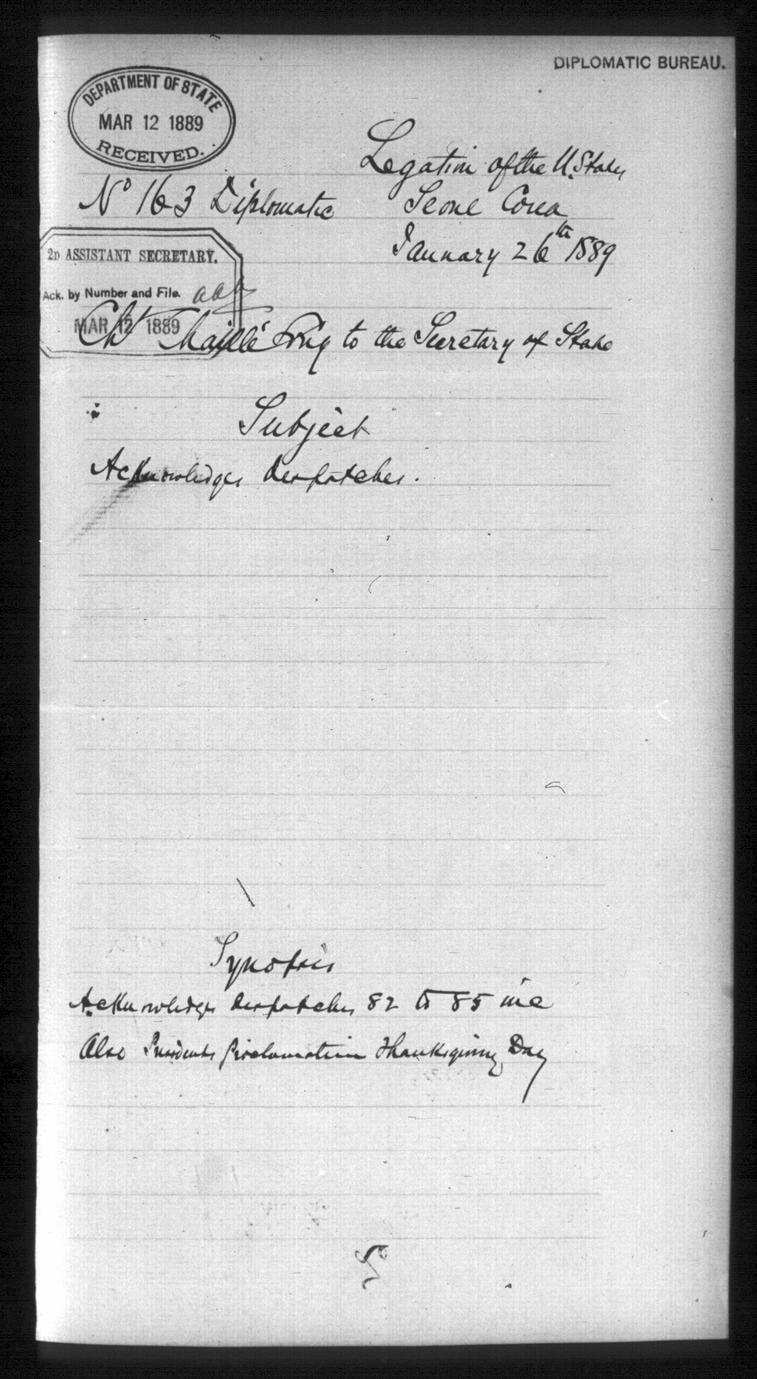 DIPLOMATIC BUREAU.
DEPARTMENT OF STATE
MAR 12 1889
RECEIVED.
Legation of the U. States
No 163 Diplomatic
Seoul Corea
January 26th 1889
2D ASSISTANT SECRETARY.
Ack. by Number and File.
MAR 12 1889
Ch Chaillé Long to the Secretary of State
Subject
Acknowledges despatches.
Synopsis
Acknowledges despatches 82 to 85 inc
Also Presidents proclamation Thanksgiving Day